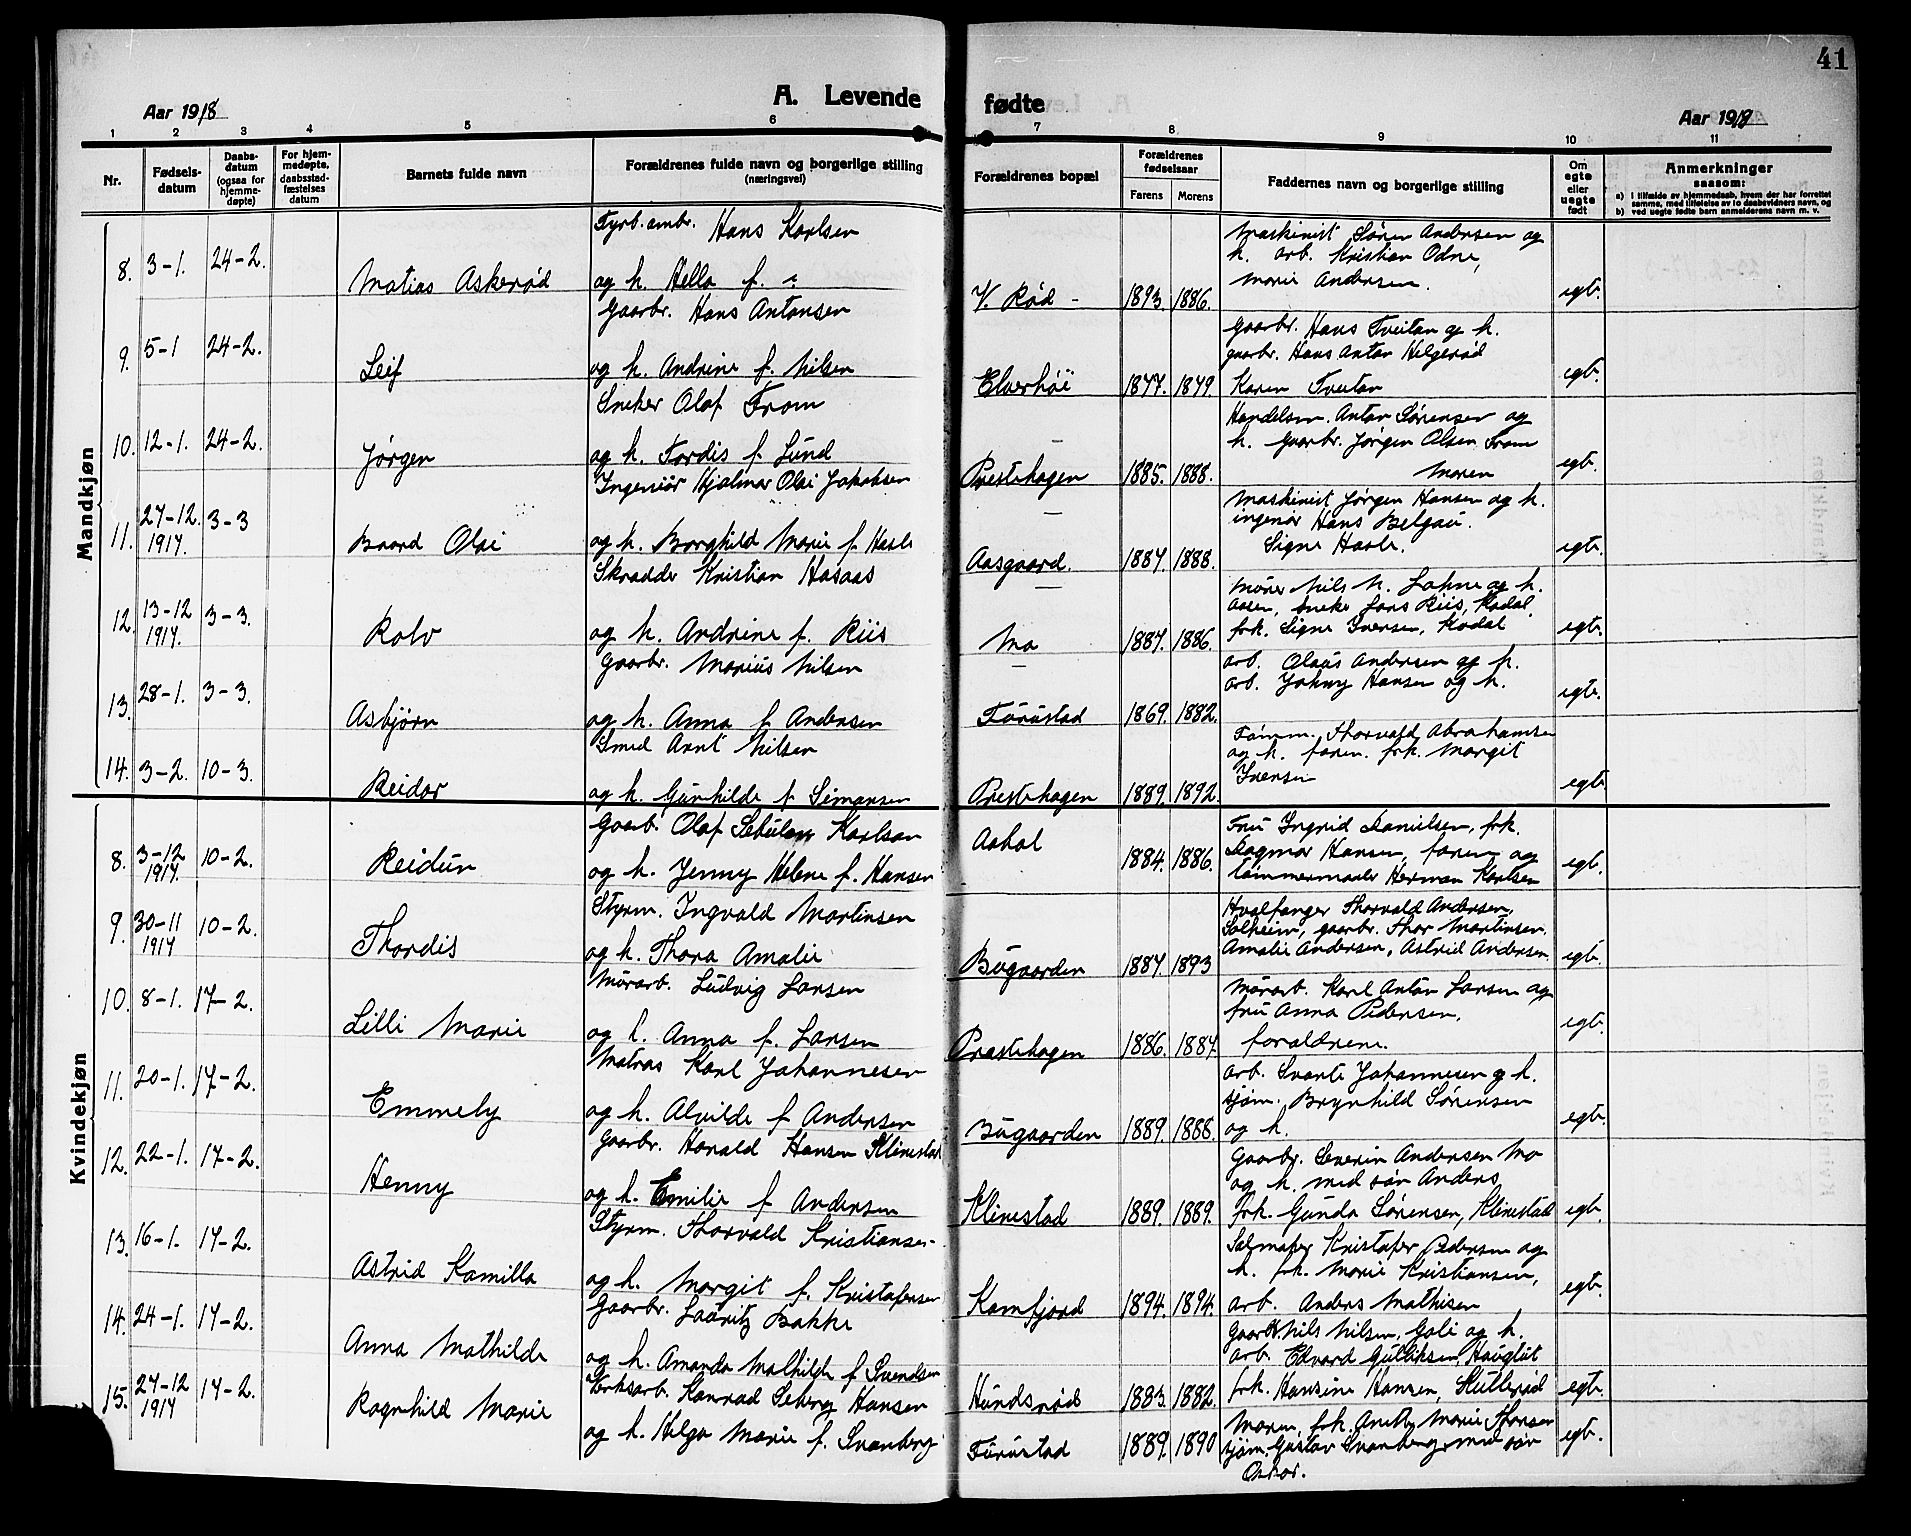 41
A. Levende fødte
Aar 1918
Aar 1918
1 2 3 4 5 6 7 8 9 10 11
Nr.
Fødsels-
datum
Daabs-
datum
(ogsaa for
hjemme-
døpte)
For hjem-
medøpte,
daabsstad-
fæstelses
datum
Barnets fulde navn
Forældrenes fulde navn og borgerlige stilling
(næringsvei)
Forældrenes bopæl
Forældrenes
fødselsaar
Farens Morens
Faddernes navn og borgerlige stilling
Om
egte
eller
uegte
født
Anmerkninger
saasom:
a) i tilfælde av hjemmedaab, hvem der har forrettet
samme, med tilføielse av to daabsvidners navn, og
b) ved uegte fødte barn anmelderens navn m. v.
Mandkjøn
Fyrb.ambr. Hans Karlsen
Maskinist Søren Andersen og
h. arb. Kristian Odne,
8. 3-1. 24-2. Matias Askerød og h. Hella f. V. Rød - 1893. 1886. Marie Andersen. egt.
Gaarbr. Hans Antonsen
Gaarbr. Hans Tveitan og h.
gaarbr. Hans Anton Helgerød
9. 5-1 24-2. Leif og h. Andrine f. Nilsen Elverhøi 1877. 1879. Karen Tveitan egt.
Sneker Olaf From
Handelsm. Anton Sørensen og
h. Gaarbr. Jørgen Olsen From
10. 12-1. 24-2. Jørgen og h. Tordis f. Lund Prestehagen 1885. 1888. Moren egt.
Ingeniør Hjalmar Olai Jakobsen
Maskinist Jørgen Hansen og h.
ingeniør Hans Belgau.
11. 27-12. 1917. 3-3 Baard Olai og h. Borghild Marie f. Hasle Aasgaard. 1887. 1888. Signe Hasle. egt.
Skrædder Kristian Hasaas
Murer Nils M. Lahne og h.
Aasen, sneker Lars Riis, Kodal.
12. 13-12 1917. 3-3. Rolv og h. Andrine f. Riis Mo 1887. 1886. frk. Signe Iversen, Kodal egt.
Gaarbr. Marius Nilsen
arb. Olaus Andersen og h.
arb. Johny Hansen og h.
13. 28-1. 3-3. Asbjørn og h. Anna f. Andersen Furustad 1869. 1882. egt.
Smed Arnt Nilsen
Tømm. Thorvald Abrahamsen
og h. faren. frk. Margit
14. 3-2. 10-3. Reidar og h. Gunhilde f. Simonsen Prestehagen 1889. 1892. Iversen egt.
Kvindekjøn
Gaarb. Olaf Karlsen Aahol
Fru Ingrid Danielsen, frk.
Dagmar Hansen, faren og
8. 3-12 1917. 10-2. Reidun og h. Jenny Helene f. Hansen 1884. 1886. tømmermaaler Herman Karlsen egt.
Styrm. Ingvald Martinsen
Hvalfanger Thorvald Andersen,
Solheim, gaarbr. Thor Martinsen.
9. 30-11 1917 10-2. Thordis og h. Thora Amalie Bugaarden 1887. 1893 Amalie Andersen, Astrid Andersen. egt.
Murarb. Ludvig Larsen
Murarb. Karl Anton Larsen og
fru Anna Pedersen,
10. 8-1. 17-2. Lilli Marie og h. Anna f. Larsen Prestehagen 1886. 1887. forældrene. egt.
Matros Karl Johannesen
arb. Svarte Johannesen og h.
sjøm. Brynhild Sørensen
11. 20-1. 17-2. Emmely og h. Alvilde f Andersen Bugaarden 1889. 1888. og h. egt.
Gaarbr. Harald Hansen Klinestad
Gaarbr. Severin Andersen Mo
og h. med søn Anders
12. 22-1. 17-2. Henny og h. Emilie f Andersen Klinestad 1889. 1889. frk. Gunda Sørensen, Klinestad egt.
Styrm. Thorvald Kristiansen
Salmaker Kristofer Pedersen og
h. frk. Marie Kristiansen,
13. 16-1. 17-2. Astrid Kamilla og h. Margit f. Kristofersen Kamfjord 1894. 1894. arb. Anders Mathisen egt.
Gaarbr. Lauritz Bakke
Gaarbr. Nils Nilsen, Gali og h.
arb. Edvard Gulliksen, Haughut
14. 24-1. 17-2. Anna Mathilde og h. Amanda Mathilde f Svendsen Hundsrød 1883. 1882. frk. Hansine Hansen, Skullerød egt.
Verksarb. Konrad Seberg Hansen
Moren, frk. Anetty Marie Thorsen
sjøm. Gustav Svanberg, med søn
15. 27-12 1917 17-2. Ragnhild Marie og h. Helga Marie f. Svanberg Furustad 1889. 1890 egt.
Oskar.